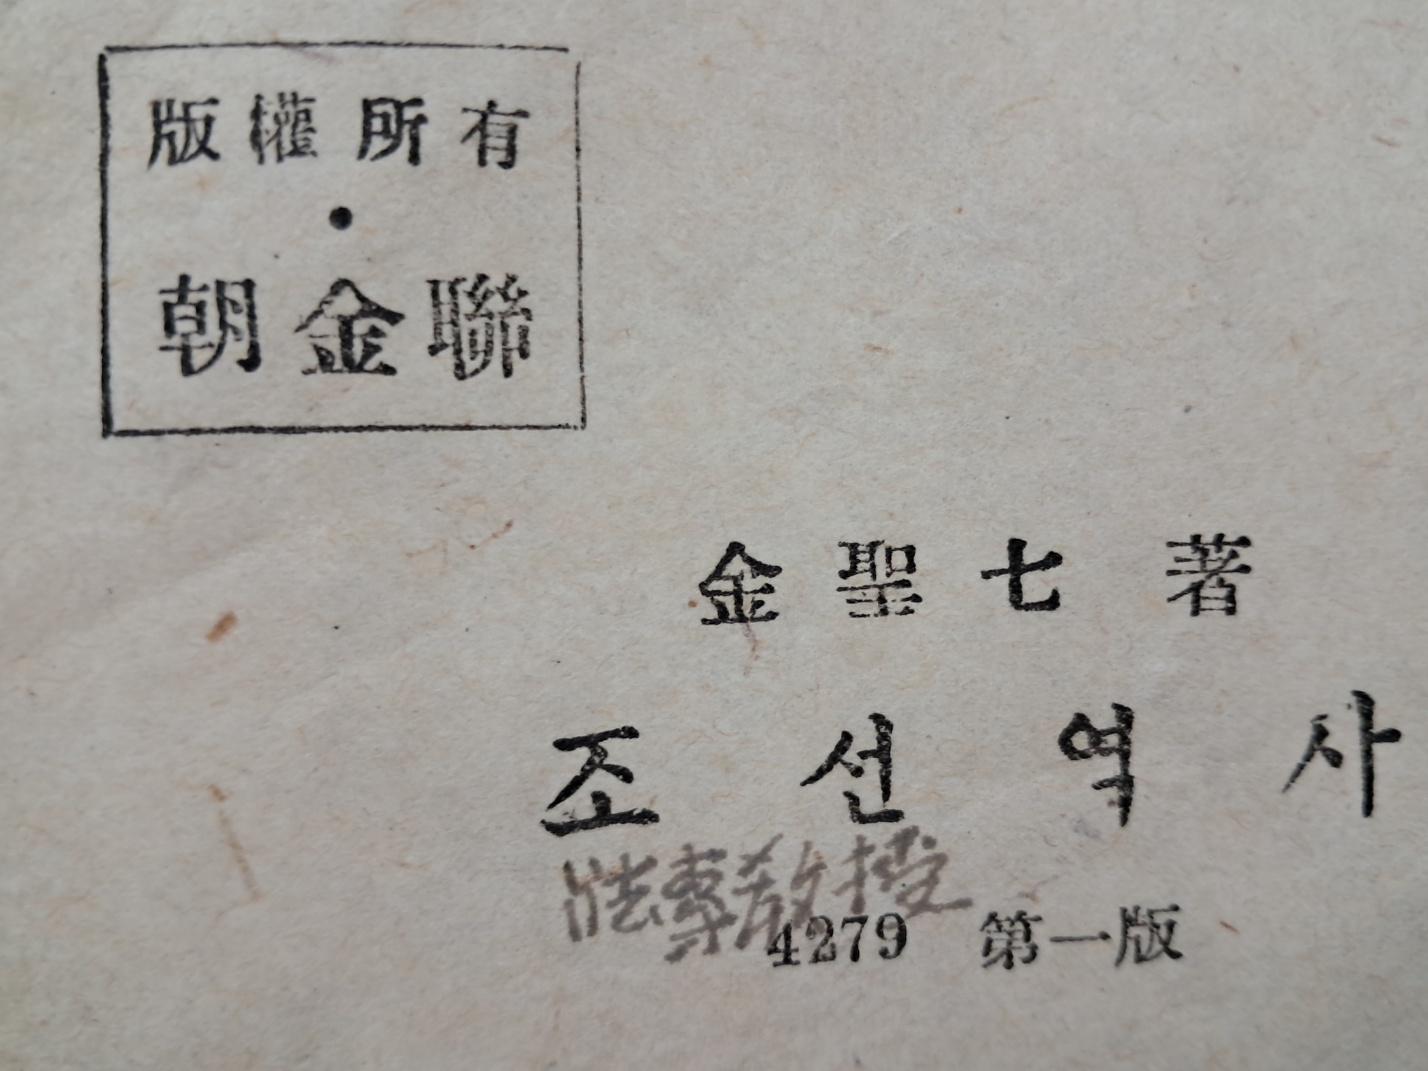 版權所有
・
朝金聯
金聖七 著
조선역사
專敎授
4279 第一版